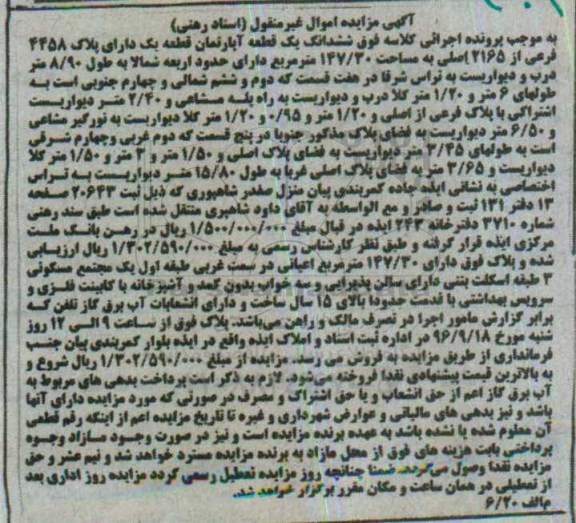 آگهی مزایده اموال غیرمنقول (اسناد رهنی)
به موجب پرونده اجرائی کلاسه فوق ششدانگ یک قطعه آپارتمان قطعه یک دارای پلاک ۴۴۵۸
فرعی از ۲۱۶۵ اصلی به مساحت ۱۴۷/۳۰ مترمربع دارای حدود اربعه شمالا به طول ۸/۹۰ متر
درب و دیواریست به تراس شرقا در هفت قسمت که دوم و ششم شمالی و چهارم جنوبی است به
طولهای ۶ متر و ۱/۲۰ متر کلا درب و دیواریست به راه پله مشاعی و ۲/۴۰ متر دیواریست
اشتراکی با پلاک فرعی از اصلی و ۱/۲۰ متر و ۰/۹۵ و ۱/۲۰ متر کلا دیواریست به نورگیر مشاعی
و ۶/۵۰ متر دیواریست به فضای پلاک مذکور جنوبا در پنج قسمت که دوم غربی وچهارم شرقی
است به طولهای ۳/۴۵ متر دیواریست به فضای پلاک اصلی و ۱/۵۰ متر و ۳ متر و ۱/۵۰ متر کلا
دیواریست و ۳/۶۵ متر به فضای پلاک اصلی غربا به طول ۱۵/۸۰ متر دیواریست به تراس
اختصاصی به نشانی ایذه جاده کمربندی پیان منزل صفدر شاهپوری که ذیل ثبت ۲۰۶۴۳ صفحه
۱۳ دفتر ۱۳۱ ثبت و صادر و مع الواسطه به آقای داود شاهیری منتقل شده است طبق سند رهنی
شماره ۳۷۱۰ دفترخانه ۲۴۳ ایذه در قبال مبلغ ۱/۵۰۰/۰۰۰/۰۰۰ ریال در رهن بانک ملت
مرکزی ایذه قرار گرفته و طبق نظر کارشناس رسمی به مبلغ ۱/۳۰۲/۵۹۰/۰۰۰ ریال ارزیابی
شده و پلاک فوق دارای ۱۴۷/۳۰ مترمربع اعیانی در سمت غربی طبقه اول یک مجتمع مسکونی
۳ طبقه اسکلت بتنی دارای سالن پذیرایی و سه خواب بدون کمد و آشپزخانه با کابینت فلزی و
سرویس بهداشتی با قدمت حدودا بالای ۱۵ سال ساخت و دارای انشعابات آب برق گاز تلفن که
برابر گزارش مامور اجرا در تصرف مالک و راهن می‌باشد. پلاک فوق از ساعت ۹ الی ۱۲ روز
شنبه مورخ ۹۶/۹/۱۸ در اداره ثبت اسناد و املاک ایذه واقع در ایذه بلوار کمربندی پیان جنب
فرمانداری از طریق مزایده به فروش می رسد. مزایده از مبلغ ۱/۳۰۲/۵۹۰/۰۰۰ ریال شروع و
به بالاترین قیمت پیشنهادی نقدا فروخته می‌شود. لازم به ذکر است پرداخت بدهی های مربوط به
آب برق گاز اعم از حق انشعاب و یا حق اشتراک و مصرف در صورتی که مورد مزایده دارای آنها
باشد و نیز بدهی های مالیاتی و عوارض شهرداری و غیره تا تاریخ مزایده اعم از اینکه رقم قطعی
آن معلوم شده یا نشده باشد به عهده برنده مزایده است و نیز در صورت وجود مازاد وجوه
پرداختی بابت هزینه های فوق از محل مازاد به برنده مزایده مسترد خواهد شد و نیم عشر و حق
مزایده نقدا وصول می‌گردد. ضمنا چنانچه روز مزایده تعطیل رسمی گردد مزایده روز اداری بعد
از تعطیلی در همان ساعت و مکان مقرر برگزار خواهد شد.
م‌الف ۶/۲۰